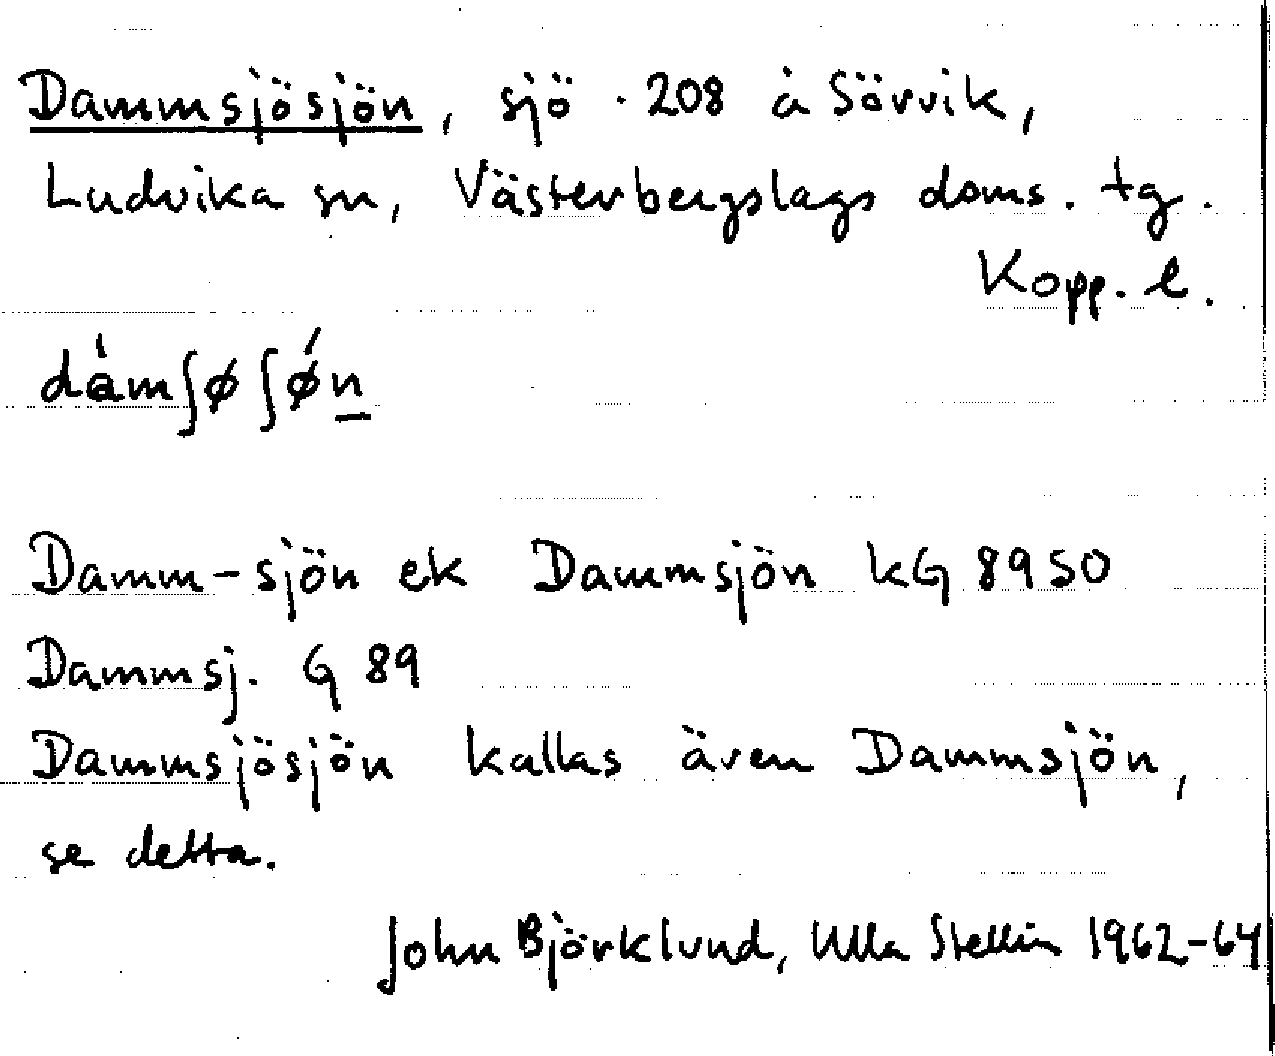 Dammsjösjön, sjö · 208 å Sörvik,
Ludvika sn, Västerbergslags doms. tg.
Kopp. l.
dàmʃøʃǿn
Damm-sjön ek Dammsjön kG 89 SO
Dammsj. G 89
Dammsjösjön kallas även Dammsjön,
se detta.
John Björklund, Ulla Stellin 1962-64